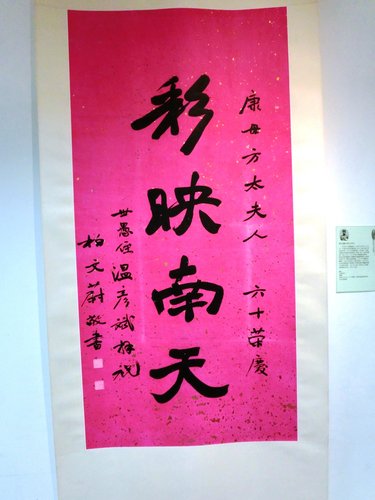 康母方太夫人 六十荣慶
彩映南天
世愚侄温彦斌拜祝
柏文蔚敬書